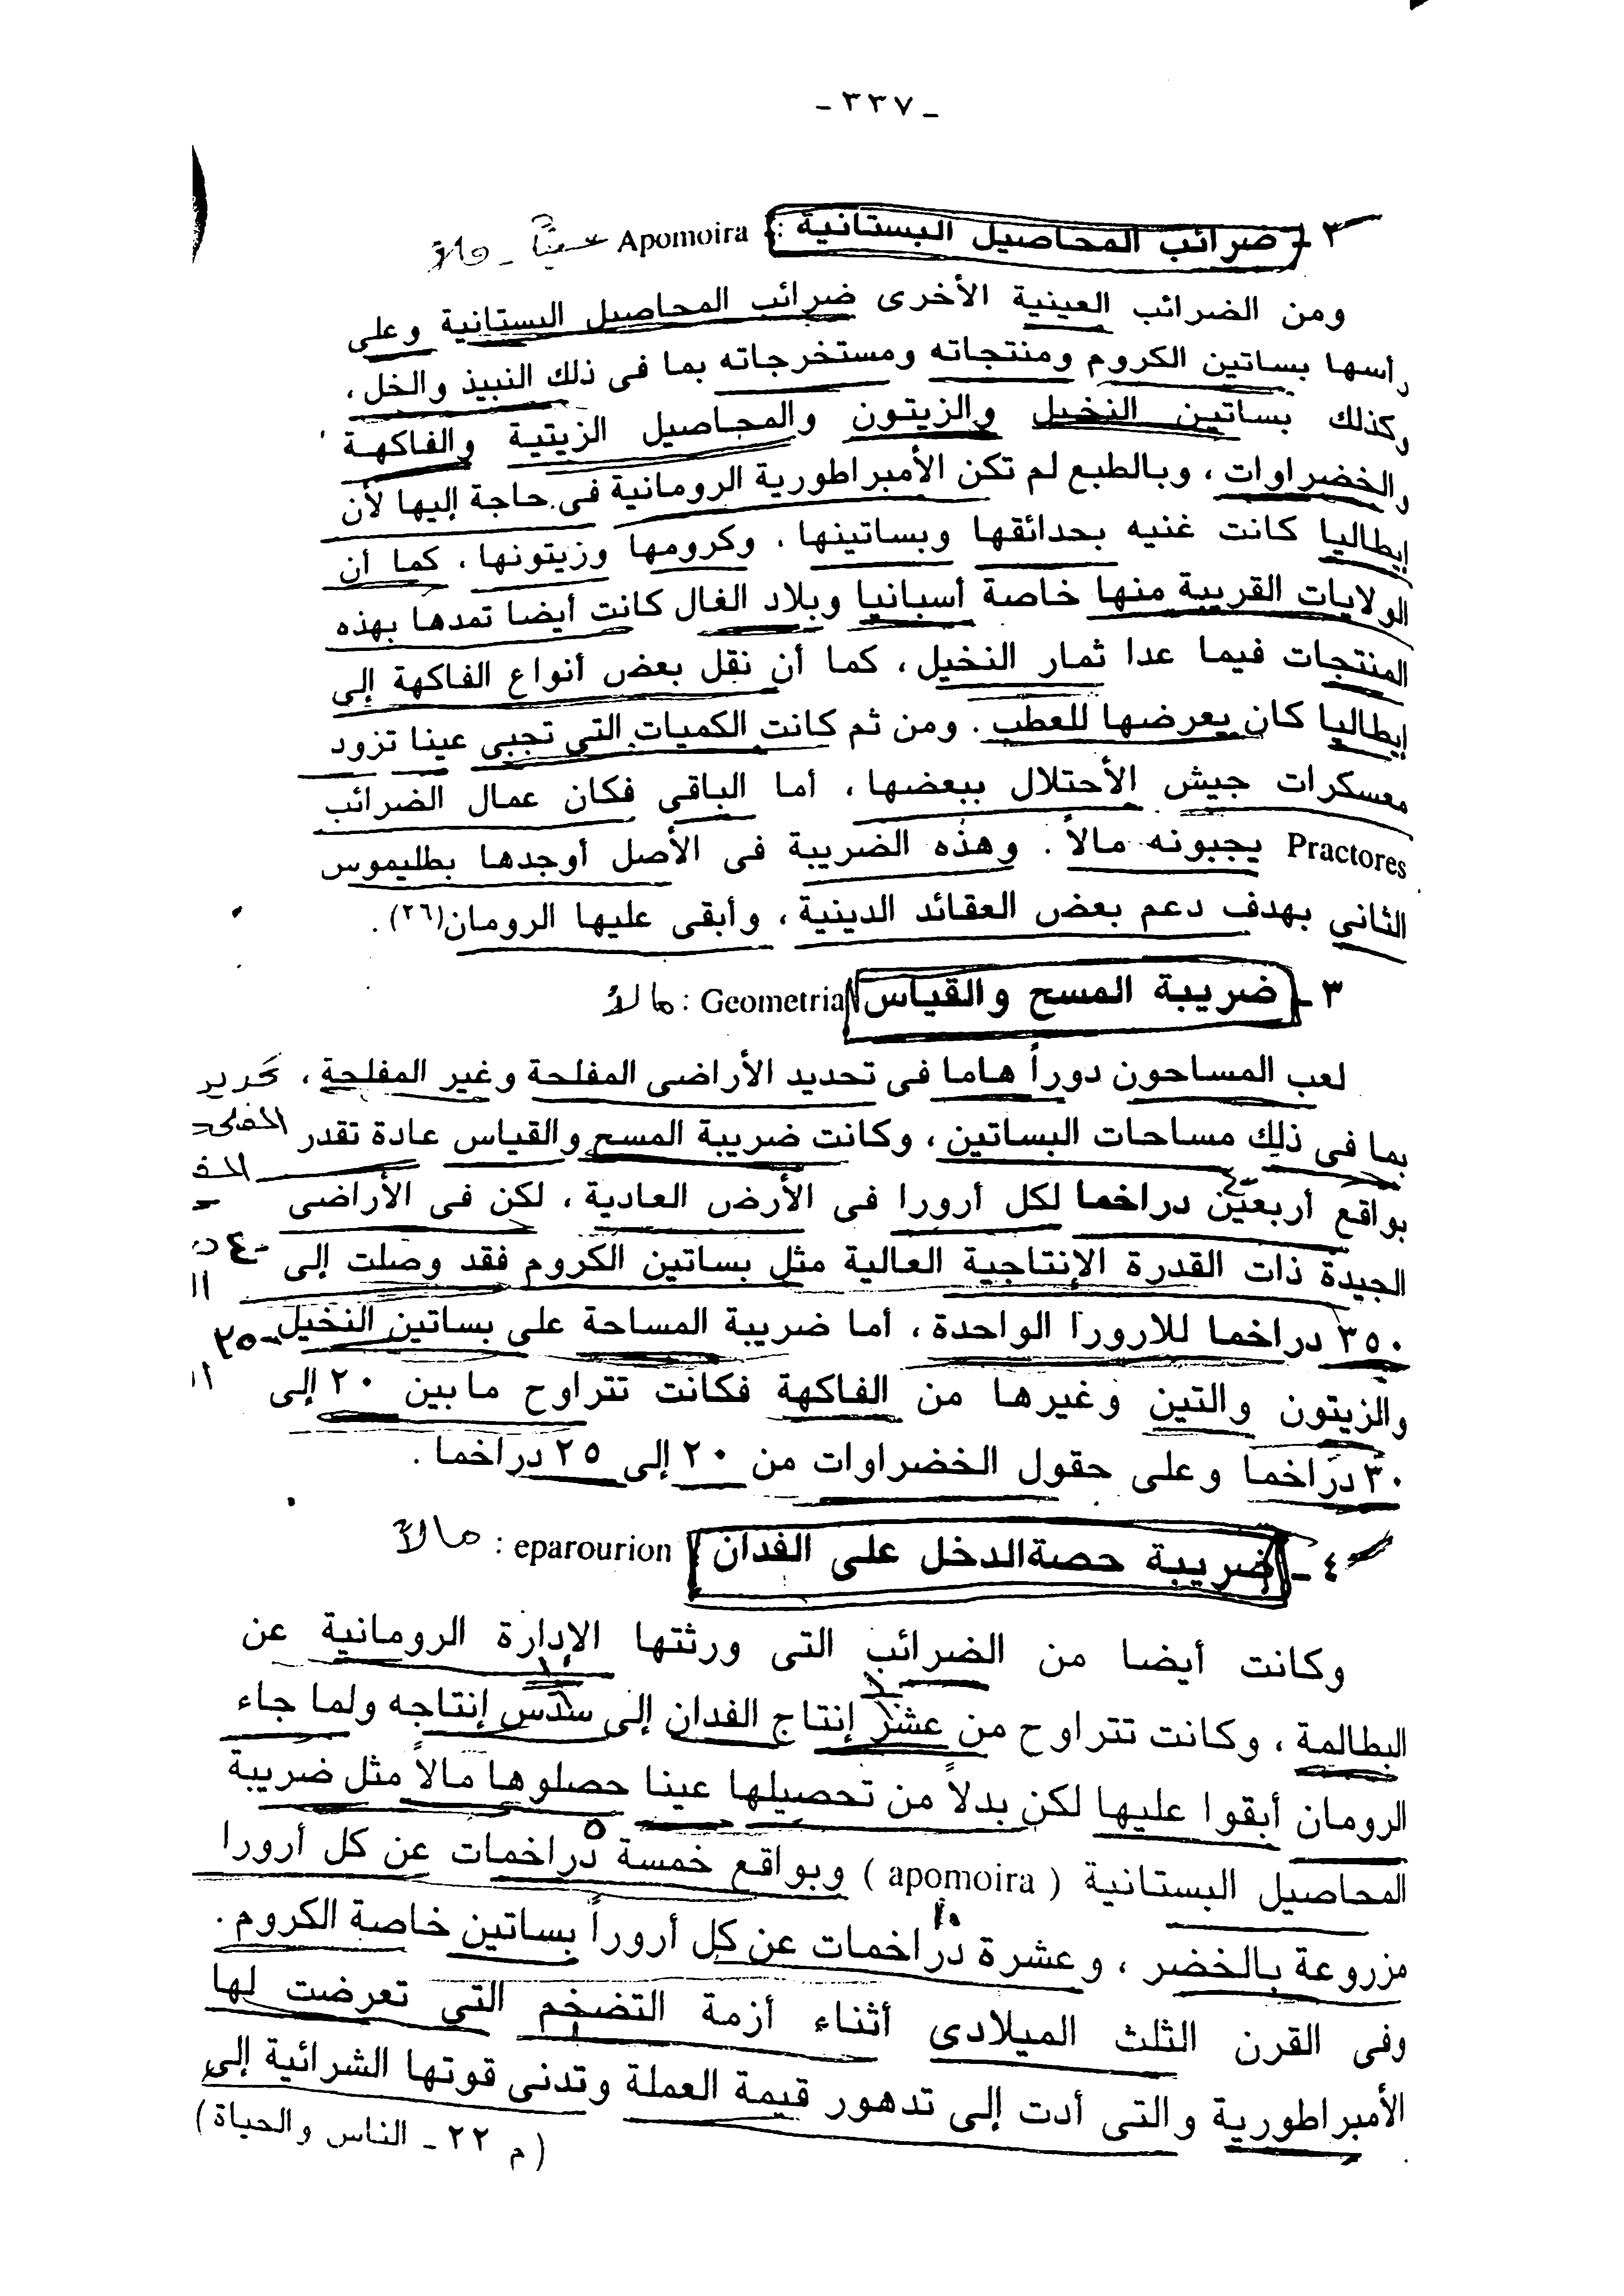 - ٣٣٧ -
٢ - ضرائب المحاصيل البستانية : Apomoira عينًا - مالاً
ومن الضرائب العينية الأخرى ضرائب المحاصيل البستانية وعلى
رأسها بساتين الكروم ومنتجاته ومستخرجاته بما فى ذلك النبيذ والخل ،
وكذلك بساتين النخيل والزيتون والمحاصيل الزيتية والفاكهة
والخضراوات ، وبالطبع لم تكن الأمبراطورية الرومانية فى حاجة إليها لأن
إيطاليا كانت غنيه بحدائقها وبساتينها ، وكرومها وزيتونها ، كما أن
الولايات القريبة منها خاصة أسبانيا وبلاد الغال كانت أيضا تمدها بهذه
المنتجات فيما عدا ثمار النخيل ، كما أن نقل بعض أنواع الفاكهة إلى
إيطاليا كان يعرضها للعطب . ومن ثم كانت الكميات التى تجبى عينا تزود
معسكرات جيش الأحتلال ببعضها ، أما الباقى فكان عمال الضرائب
Practores يجبونه مالاً . وهذه الضريبة فى الأصل أوجدها بطليموس
الثانى بهدف دعم بعض العقائد الدينية ، وأبقى عليها الرومان(٢٦) .
٣ - ضريبة المسح والقياس Geometria : مالاً
لعب المساحون دوراً هاما فى تحديد الأراضى المفلحة وغير المفلحة ،
بما فى ذلك مساحات البساتين ، وكانت ضريبة المسح والقياس عادة تقدر
بواقع أربعين دراخما لكل أرورا فى الأرض العادية ، لكن فى الأراضى
الجيدة ذات القدرة الإنتاجية العالية مثل بساتين الكروم فقد وصلت إلى
٣٥٠ دراخما للارورا الواحدة ، أما ضريبة المساحة على بساتين النخيل
والزيتون والتين وغيرها من الفاكهة فكانت تتراوح مابين ٢٠ إلى
٣٠ دراخما وعلى حقول الخضراوات من ٢٠ إلى ٢٥ دراخما .
٤ - ضريبة حصة الدخل على الفدان eparourion : مالاً
وكانت أيضا من الضرائب التى ورثتها الإدارة الرومانية عن
البطالمة ، وكانت تتراوح من عشر إنتاج الفدان إلى سدس إنتاجه ولما جاء
الرومان أبقوا عليها لكن بدلاً من تحصيلها عينا حصلوها مالاً مثل ضريبة
المحاصيل البستانية ( apomoira ) وبواقع خمسة دراخمات عن كل أرورا
مزروعة بالخضر ، وعشرة دراخمات عن كل أروراً بساتين خاصة الكروم .
وفى القرن الثلث الميلادى أثناء أزمة التضخم التى تعرضت لها
الأمبراطورية والتى أدت إلى تدهور قيمة العملة وتدنى قوتها الشرائية إلى
( م ٢٢ - الناس والحياة )